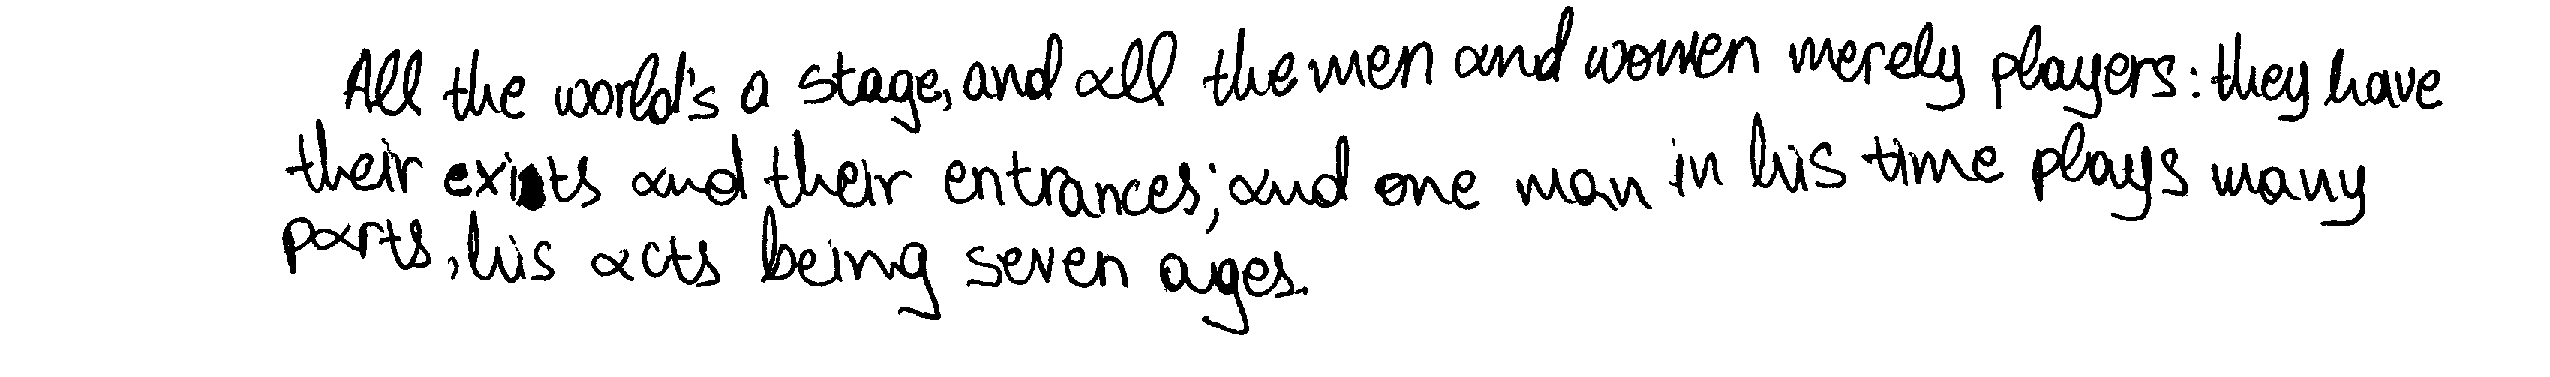 All the world's a stage, and all the men and women merely players: they have
their exits and their entrances; and one man in his time plays many
parts, his acts being seven ages.